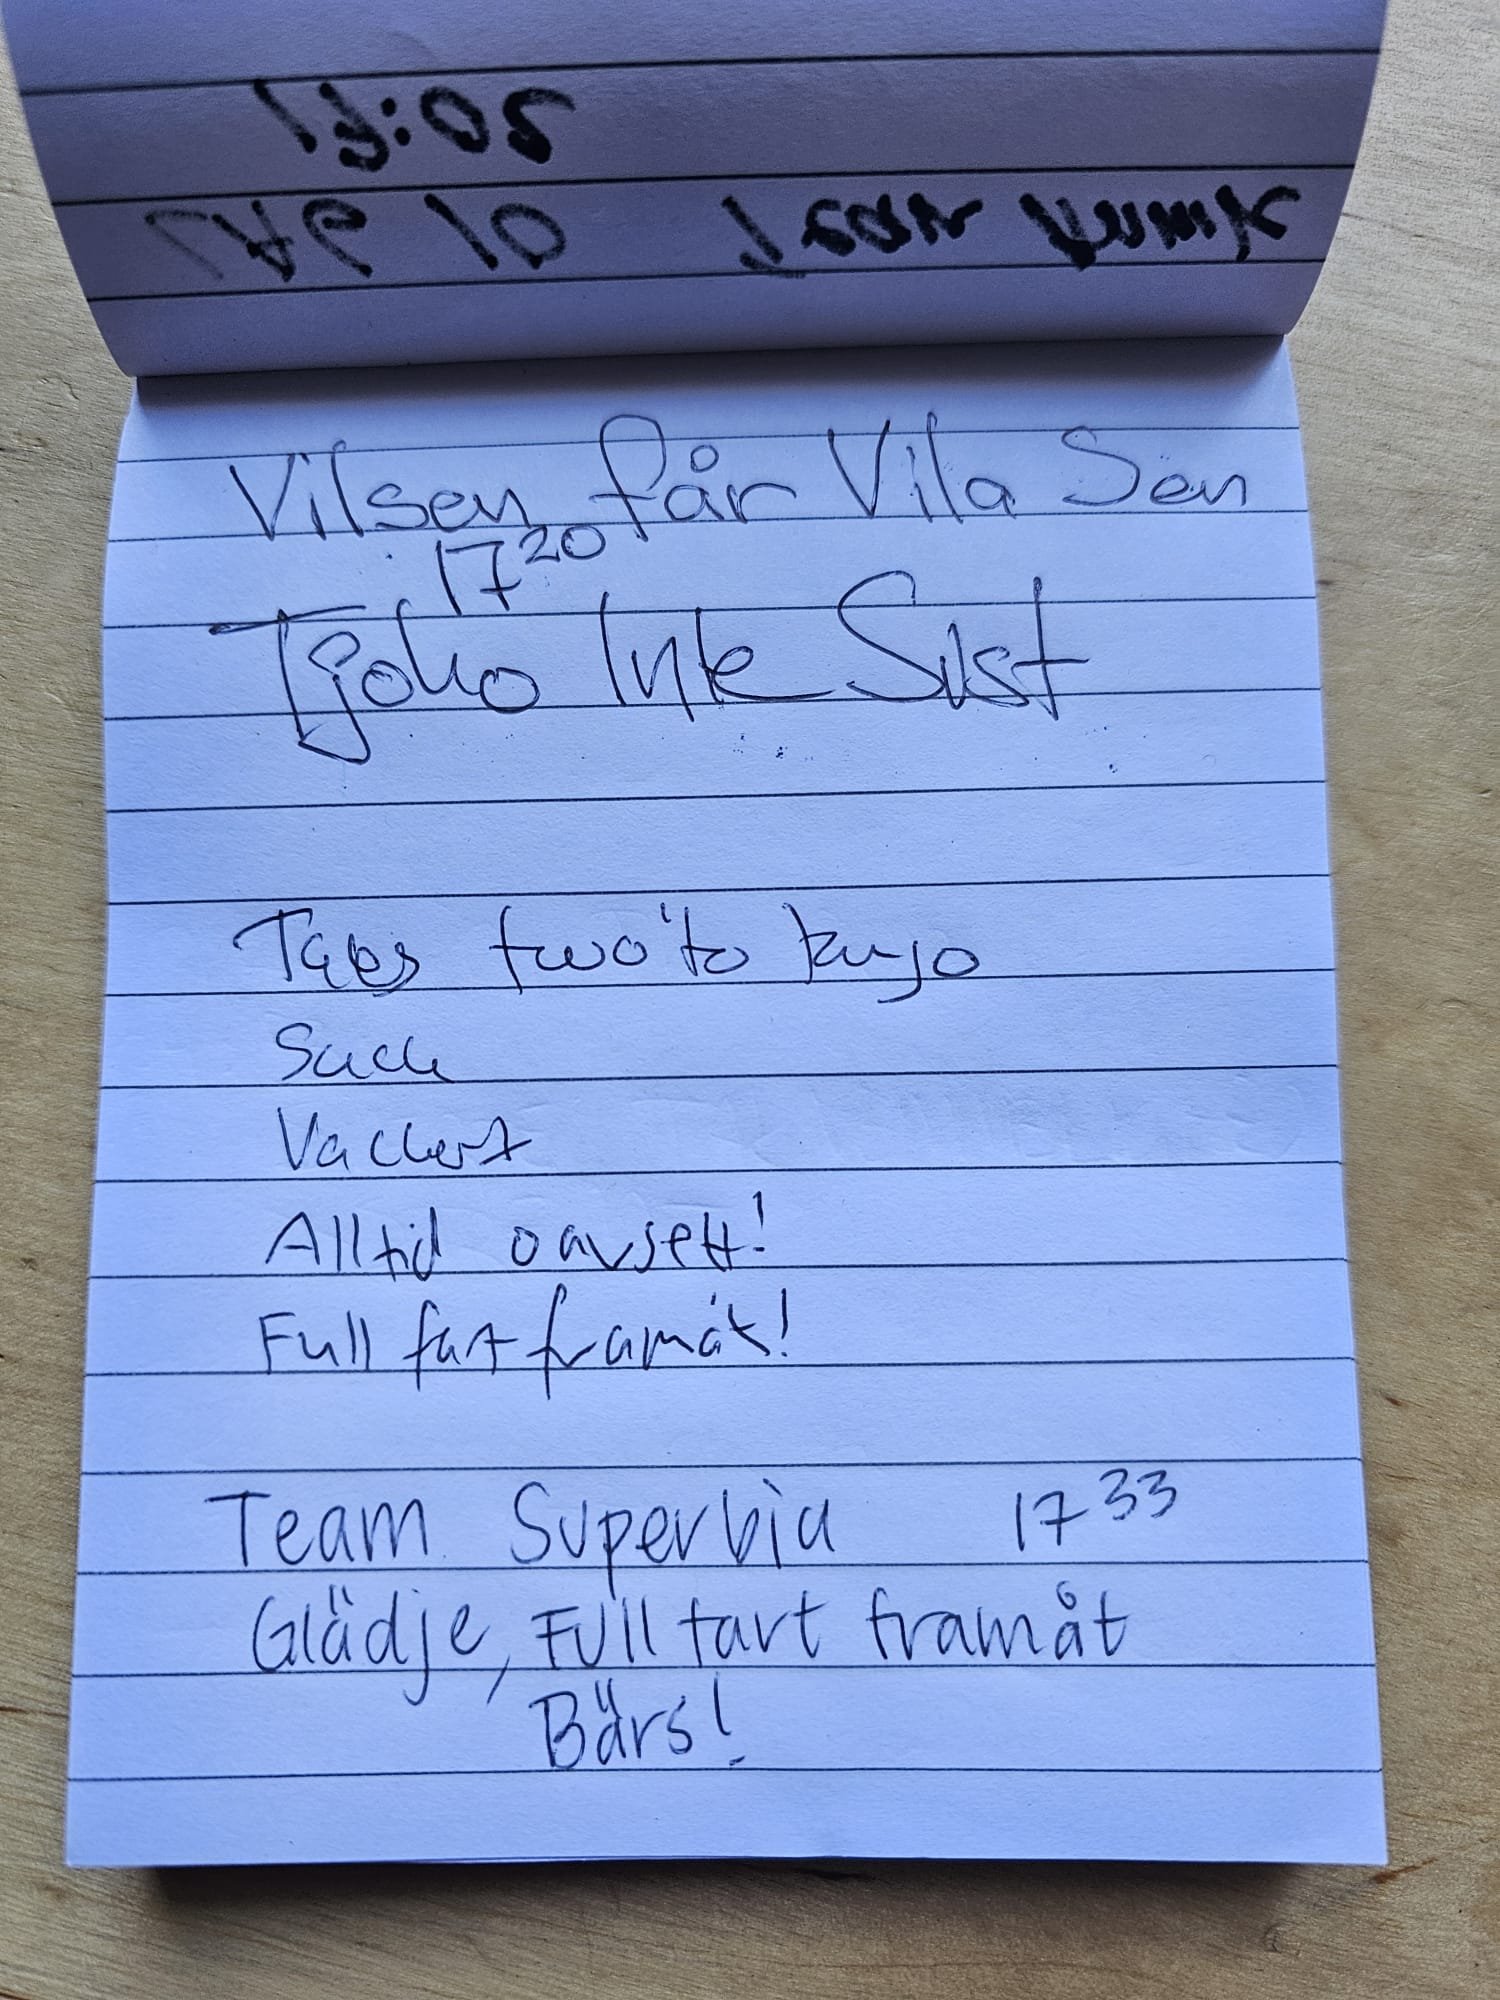 17:02
TAG 10 Team
Vilsen får Vila Sen
17 20
Tjoho Inte Sist
two to
Vackert
Alltid oavsett!
Full fart framåt!
Team Superbia 17 33
Glädje, Full fart framåt
Bärs!